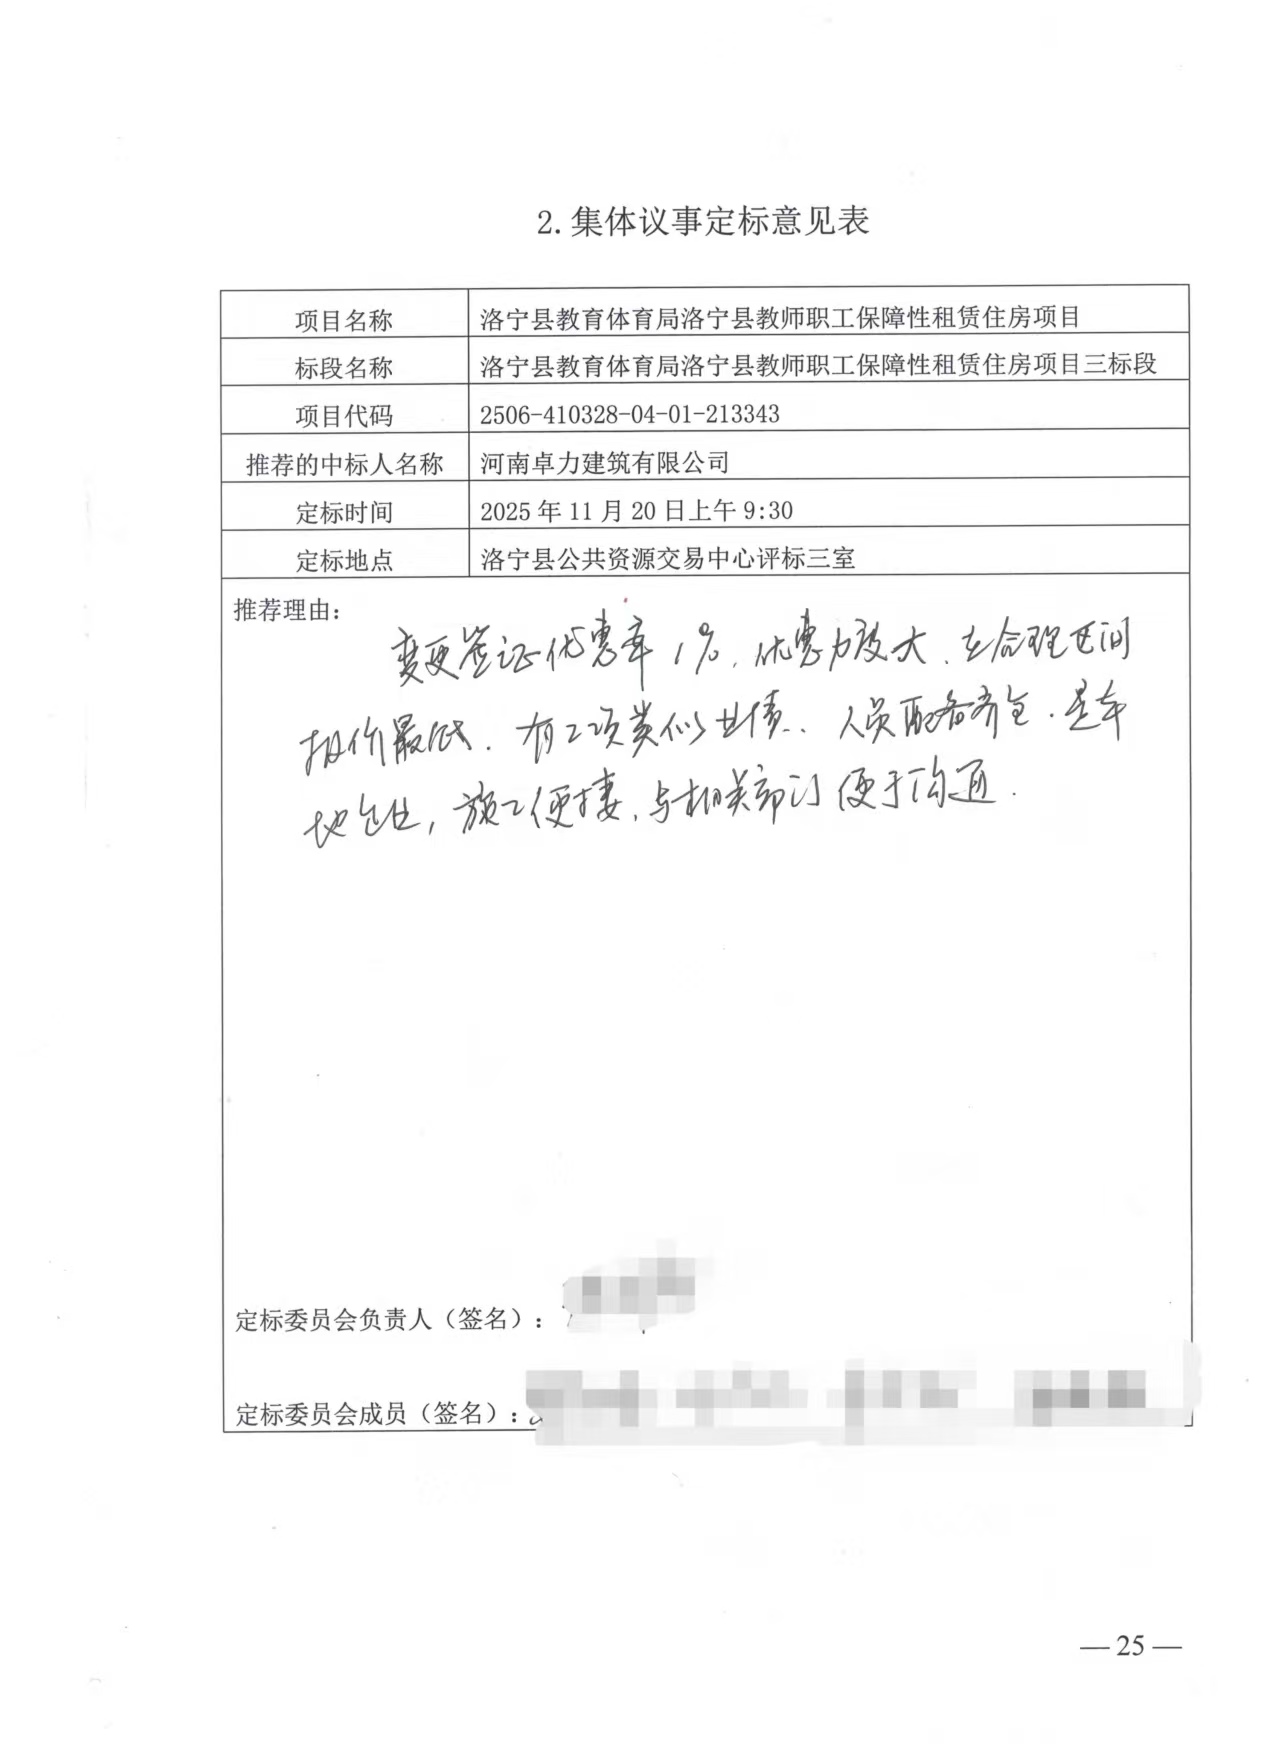 2.集体议事定标意见表
项目名称 洛宁县教育体育局洛宁县教师职工保障性租赁住房项目
标段名称 洛宁县教育体育局洛宁县教师职工保障性租赁住房项目三标段
项目代码 2506-410328-04-01-213343
推荐的中标人名称 河南卓力建筑有限公司
定标时间 2025年11月20日上午9:30
定标地点 洛宁县公共资源交易中心评标三室
推荐理由：
变更签证优惠率1%，优惠力度大、在合理区间
报价最低、有2项类似业绩、人员配备齐全、是本
地企业，施工便捷，与相关部门便于沟通.
定标委员会负责人（签名）：
定标委员会成员（签名）：
—25—